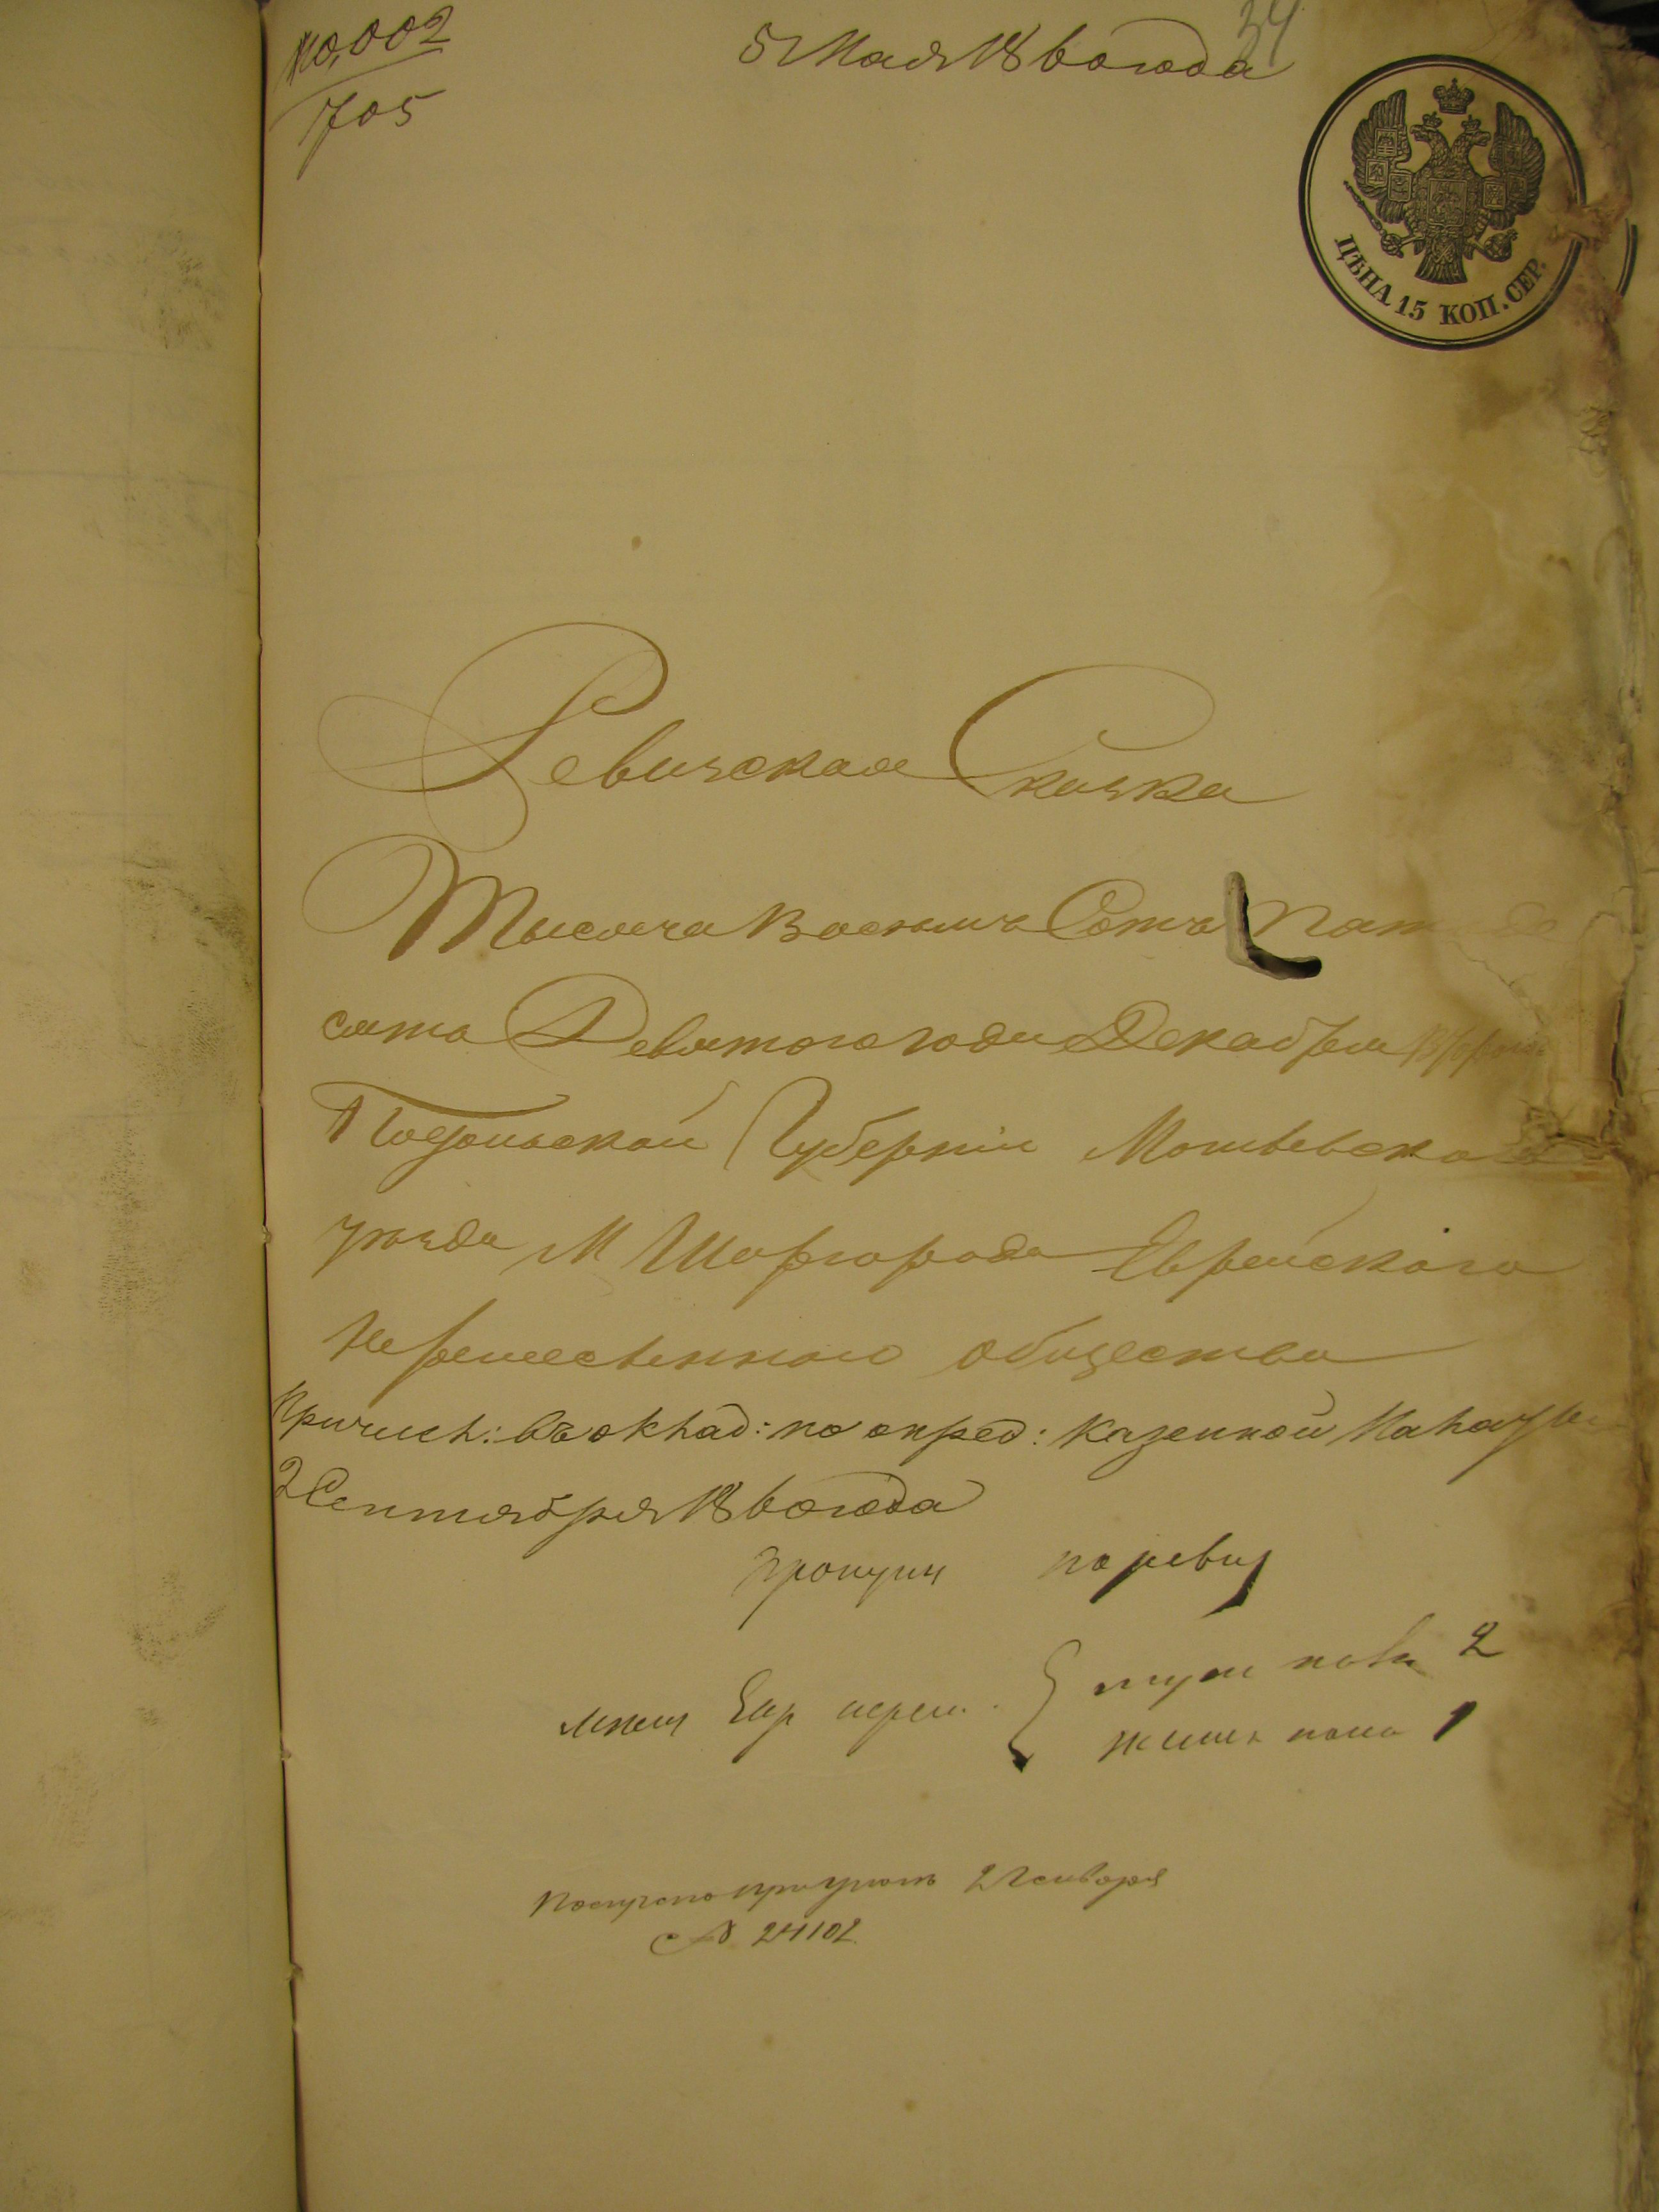 10,002
705
5 Мая 1860 года
34
ЦѢНА 15 КОП. СЕР.
Ревизская Сказка
Тысяча Восемь Сотъ Пят де
сятъ Девятого года Декабря
Подольской Губерніи Могилевского
уѣзда М Шаргорода Еврейского
Перешественного общества
Причисл: въ оклад: по опред: Казенной Палаты
2 Сентября 1860 года
пропущ по ревиз
мѣщ Евр муж пола 2
женск пола 1
2 Генваря
№ 24102